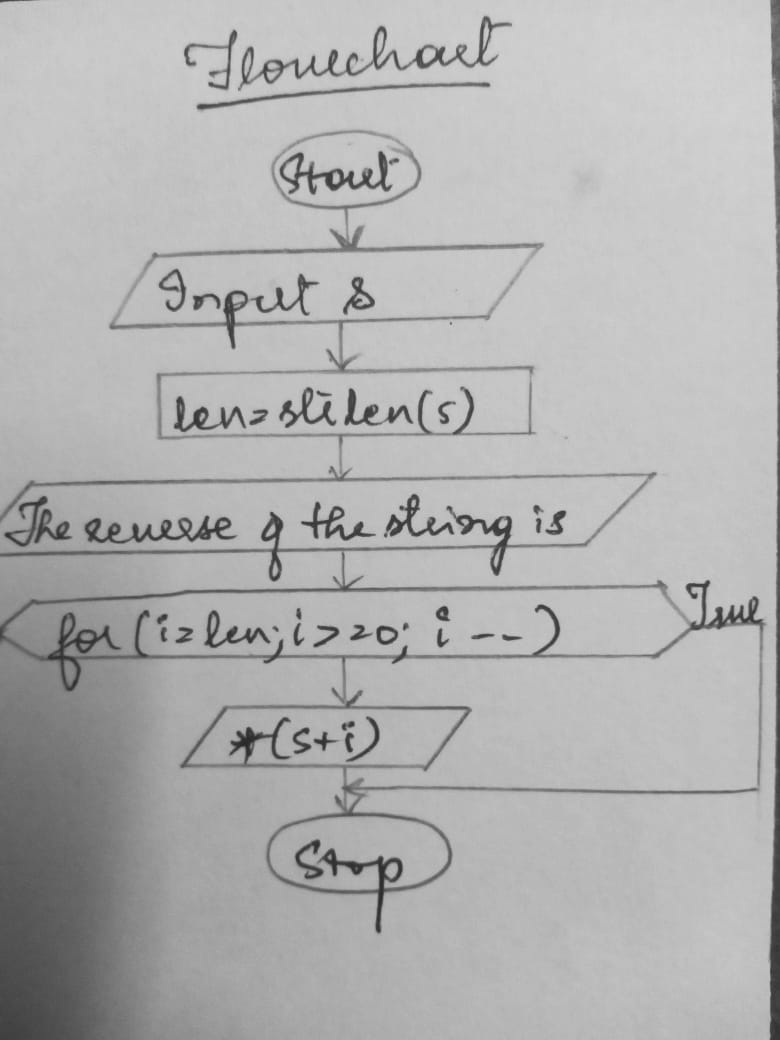 Flowchart
Start
Input s
len=strlen(s)
The reverse of the string is
for(i=len;i>=0; i--)
True
*(s+i)
Stop